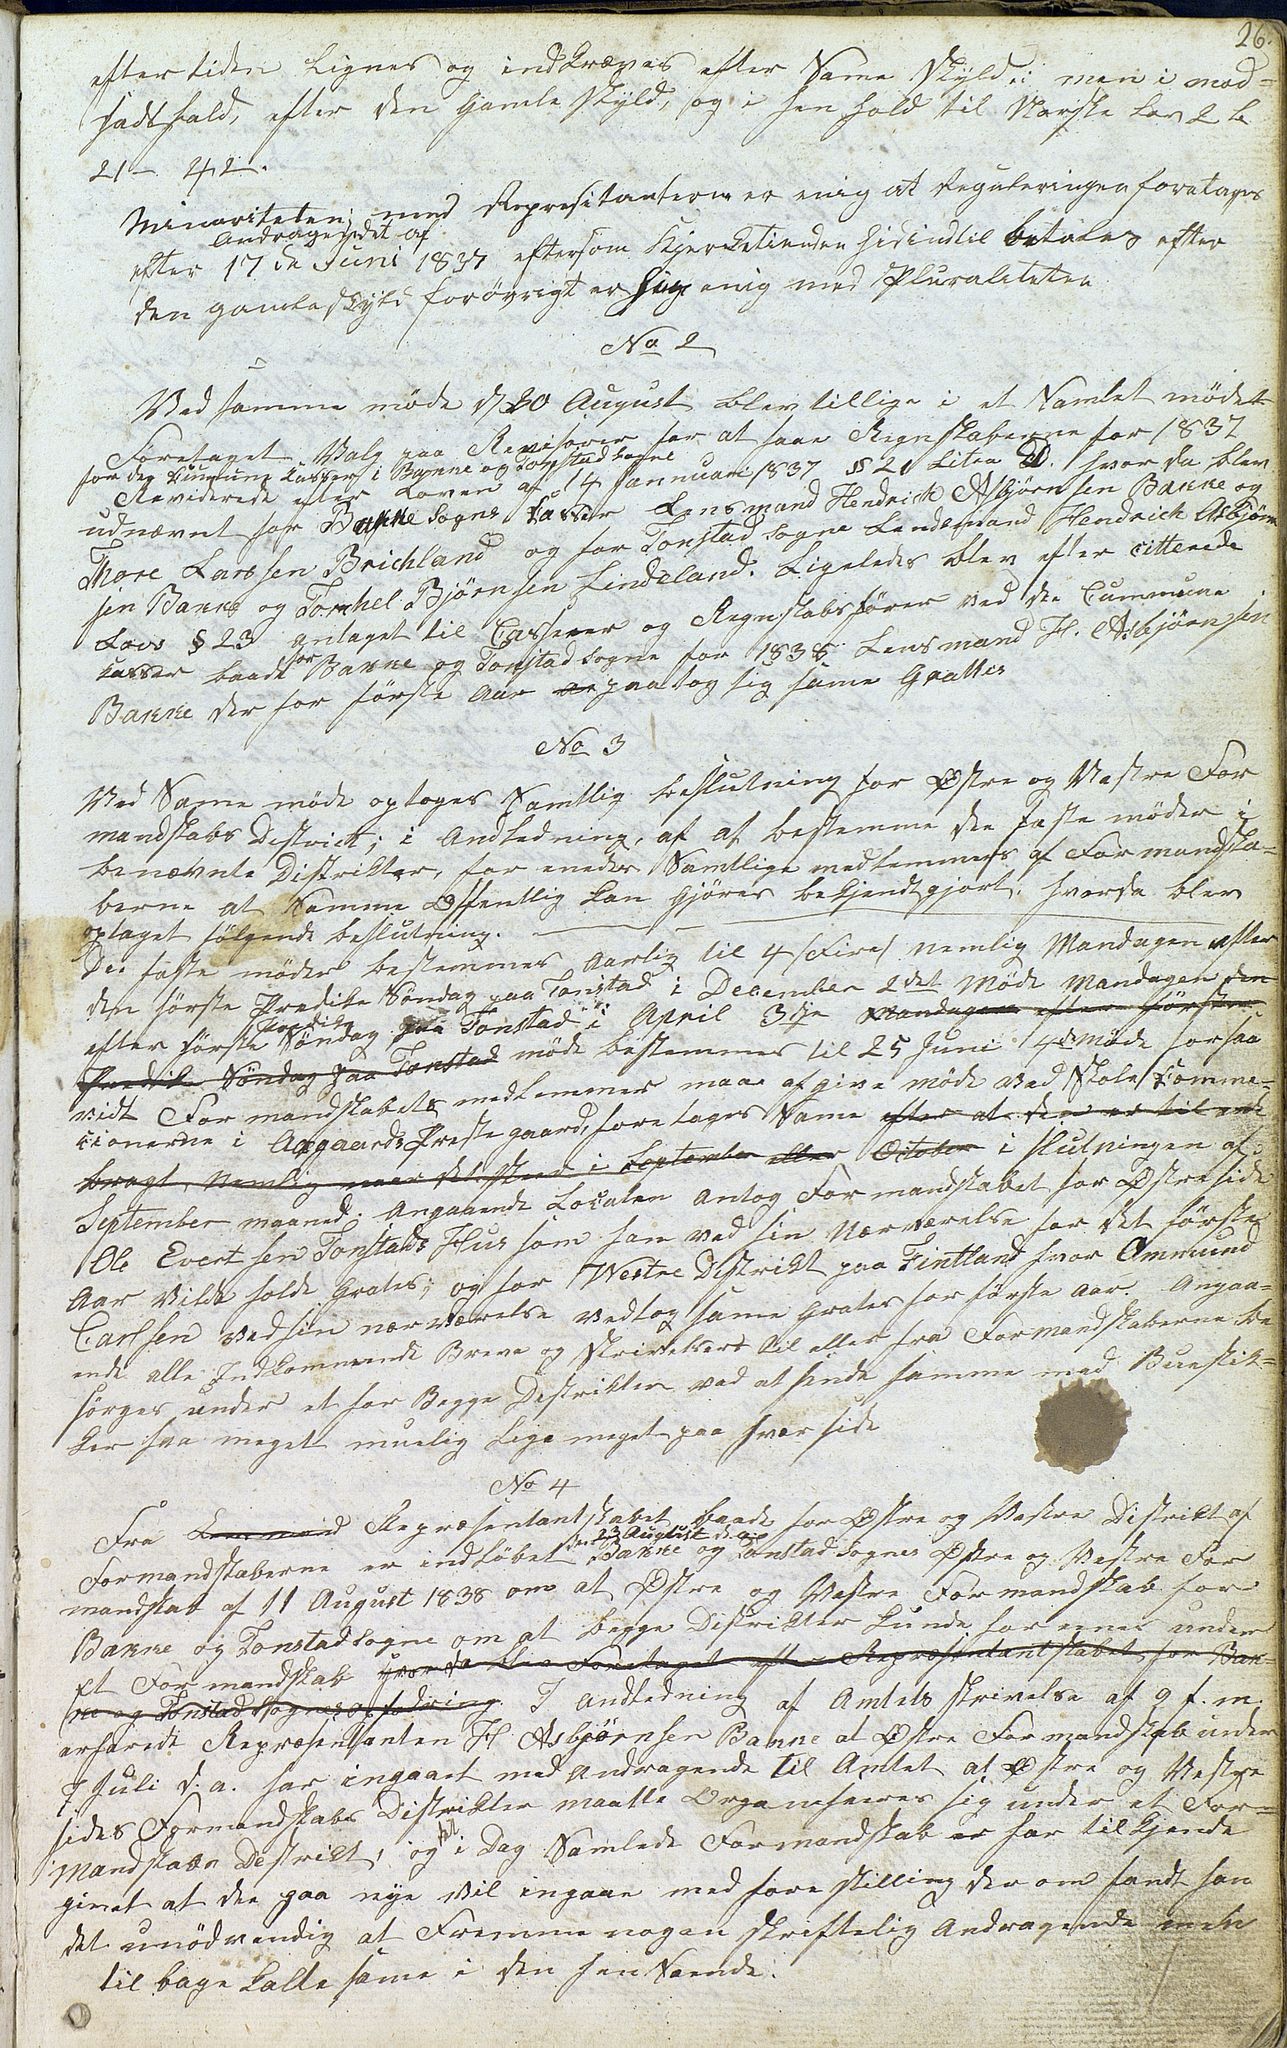 26.
eftertiden Lignes og indkræves efter Same Skyld; men i mod=
sadtfald, efter den Gamle Skyld, og i henhold til Norske Lov 2 B
21 - 42.
Minoriteten; med Represitanteren er enig at Reguleringen foretages
Andragendet af
efter 17de Juni 1837 eftersom Kjerketienden hidindtil betales efter
den gamle Skyld forövrigt er hig enig med Pluraliteten
No 2
Ved samme möde d 20 August blev tillige i et Samlet möde
Foretaget Valg paa Revisorer for at faae Regnskaberne for 1837
for den Kummune Kasser i Bakke og Tonstad Sogne
Reviderede efter Loven af 14 Januari 1837 §§ 21 Litra D. hvor da blev
udnævnt for Bakke Sogns Kasser Lensmand Hendrick Asbjørnsen Bakke og
Thore Larssen Brichland og for Tonstad Sogne Lendsmand Hendrich Asbjørn
sen Bakke og Torkel Bjørnsen Lindeland. Ligeledes blev efter citterede
Lovs § 23 antaget til Casserer og Regnskabsförer ved de Cummune
Kasser baade for Bakke og Tonstad Sogne for 1838 Lensmand H. Asbjörnsen
Bakke der for förste Aar paatog sig same Grattis
No 3
Ved Same möde optoges Samtlig beslutning for Østre og Vestre For
mandskabs Destrict; i Andledning, af at bestemme de faste möder i
benævnte Distrikter, for eneder Samtlige medlemmers af Formandska=
berne at Samme Offentlig kan gjöres bekjendtgjort, hvorda blev
optaget følgende beslutning.
De faste möder bestemmes Aarlig til 4 (Fire) nemlig Mandagen efter
den förste Prediken Söndag paa Tonstad i December 2det Möde Mandagen den
Prediken
efter förste Söndag paa Tonstad i April 3die Mandagen efter förste
Predike Söndag paa Tonstad möde bestemmes til 25 Juni 4de Möde forsaa
vidt Formandskabets medlemmer maae afgive möde ved Skole Komme=
cionerne i Aagaards Prestegaard, foretages Same efter at den er til ende
bragt, Nemlig naar det skeer i September eller October i slutningen af
September maaned. Angaaende Localen antog Formandskabet for Østreside
Ole Evertsen Tonstads Hus som han ved sin Nærværelse for det förste
Aar vilde holde Grates; og for Westre Distrikt paa Fintland hvor Ommund
Carlsen ved sin nærværelse vedtog same Grates for förste Aar. Angaa=
ende alle Indkommende Breve og Skrivelser til eller fra Formandskaberne be
sörges under et for Begge Destrikter ved at sende samme med Bunstik=
ker saa meget muelig Lige meget paa hver side
No 4
Fra Lensmand Repræsentantskabet baade for Østre og Vestre Distrikt af
23 August d. a.
Formandskaberne er indløbet Bakke og Tonstad Sognes Østre og Vestre For
mandskab af 11 August 1838 om at Østre og Vestre Formandskab for
Bakke og Tonstad Sogne om at begge Distrikter kunde forenes under
Et Formandskab hvorda blev Foretaget efter Repræsentantskabet for Bak=
ke og Tonstad Sognes opfodring. I andledning af Amtets skrivelse af 9 f. m.
erfaredt Repræsentanten H Asbjørnsen Bakke at Østre Formandskab under
7 Juli d. a. har ingaaet med Andragende til Amtet at Østre og Vestre
sides Formandskabs Distrikter maatte Organiseeres sig under et For=
mandskabs Destrikt, og i Dag Samlede Formandskab er har tilkjende
givet at de paa nye vil ingaae med forestilling derom fandt han
det unödvendig at Fremme nogen skriftelig Andragende men
tilbage kalte same i den henseende.